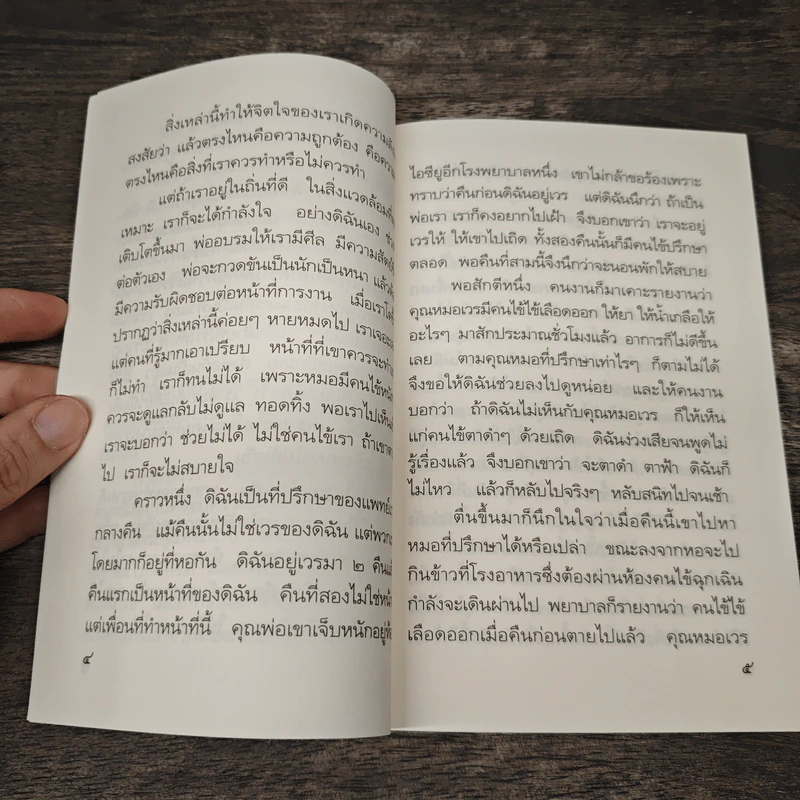 สิ่งเหล่านี้ทำให้จิตใจของเราเกิด
สงสัยว่า แล้วตรงไหนคือความถูกต้อง
ตรงไหนคือสิ่งที่เราควรทำหรือไม่ควรทำ
แต่ถ้าเราอยู่ในถิ่นที่ดี ในสิ่งแวดล้อม
เหมาะ เราก็จะได้กำลังใจ อย่างดิฉันเอง
เติบโตขึ้นมา พ่ออบรมให้เรามีศีล มีความ
ต่อตัวเอง พ่อจะกวดขันเป็นนักเป็นหนา
มีความรับผิดชอบต่อหน้าที่การงาน เมื่อเรา
ปรากฏว่าสิ่งเหล่านี้ค่อยๆ หายหมดไป
แต่คนที่รู้มากเอาเปรียบ หน้าที่ที่เขาควรจะ
ก็ไม่ทำ เราก็ทนไม่ได้ เพราะหมอมีคนไข้
ควรจะดูแลกลับไม่ดูแล ทอดทิ้ง พอเราไป
เราจะบอกว่า ช่วยไม่ได้ ไม่ใช่คนไข้เรา ถ้าเขา
ไป เราก็จะไม่สบายใจ
คราวหนึ่ง ดิฉันเป็นที่ปรึกษาของแพทย์
กลางคืน แม้คืนนั้นไม่ใช่เวรของดิฉัน
โดยมากก็อยู่ที่หอกัน ดิฉันอยู่เวรมา ๒ คืน
คืนแรกเป็นหน้าที่ของดิฉัน คืนที่สองไม่ใช่
แต่เพื่อนที่ทำหน้าที่นี้ คุณพ่อเขาเจ็บหนักอยู่
๔
ไอซียูอีกโรงพยาบาลหนึ่ง เขาไม่กล้าขอร้องเพราะ
ทราบว่าคืนก่อนดิฉันอยู่เวร แต่ดิฉันนึกว่า ถ้าเป็น
พ่อเรา เราก็คงอยากไปเฝ้า จึงบอกเขาว่า เราจะอยู่
เวรให้ ให้เขาไปเถิด ทั้งสองคืนนั้นก็มีคนไข้ปรึกษา
ตลอด พอคืนที่สามนี้จึงนึกว่าจะนอนพักให้สบาย
พอสักตีหนึ่ง คนงานก็มาเคาะรายงานว่า
คุณหมอเวรมีคนไข้ไข้เลือดออก ให้ยา ให้น้ำเกลือให้
อะไรๆ มาสักประมาณชั่วโมงแล้ว อาการก็ไม่ดีขึ้น
เลย ตามคุณหมอที่ปรึกษาเท่าไรๆ ก็ตามไม่ได้
จึงขอให้ดิฉันช่วยลงไปดูหน่อย และให้คนงาน
บอกว่า ถ้าดิฉันไม่เห็นกับคุณหมอเวร ก็ให้เห็น
แก่คนไข้ตาดำๆ ด้วยเถิด ดิฉันง่วงเสียจนพูดไม่
รู้เรื่องแล้ว จึงบอกเขาว่า จะตาดำ ตาฟ้า ดิฉันก็
ไม่ไหว แล้วก็หลับไปจริงๆ หลับสนิทไปจนเช้า
ตื่นขึ้นมาก็นึกในใจว่าเมื่อคืนนี้เขาไปหา
หมอที่ปรึกษาได้หรือเปล่า ขณะลงจากหอจะไป
กินข้าวที่โรงอาหารซึ่งต้องผ่านห้องคนไข้ฉุกเฉิน
กำลังจะเดินผ่านไป พยาบาลก็รายงานว่า คนไข้ไข้
เลือดออกเมื่อคืนก่อนตายไปแล้ว คุณหมอเวร
๕